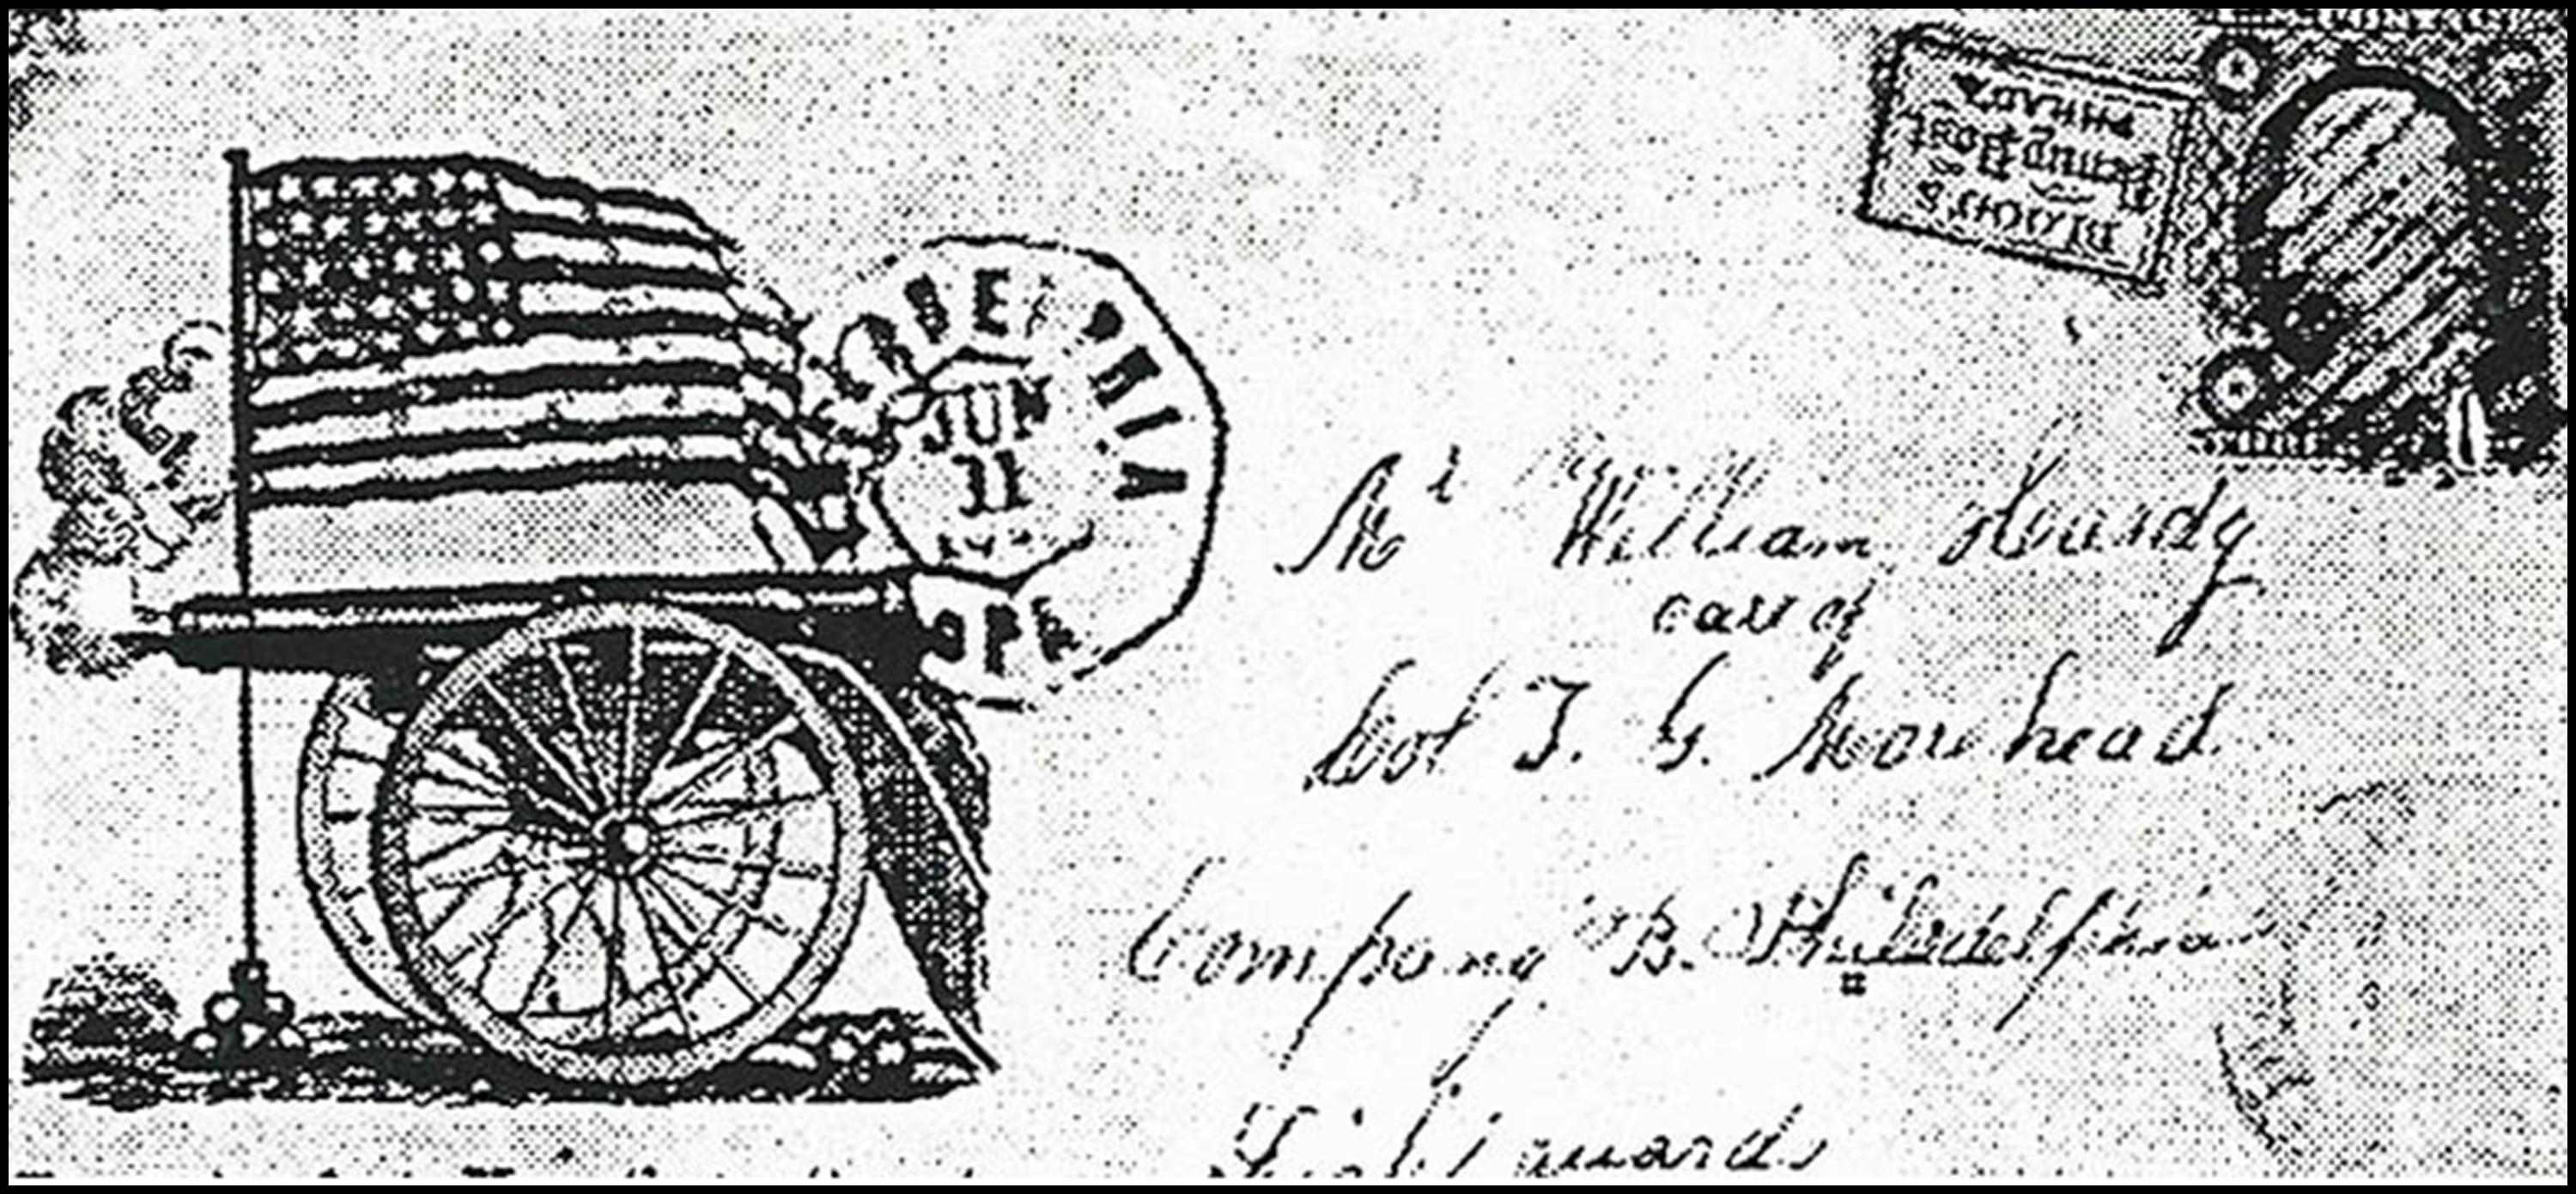 BLOOD'S
Penny Post
PHILAD
DELPHIA
JUN
11
Mr William
care of
Col T. G. Morehead
Company "B. Philadelphia
Light Guards